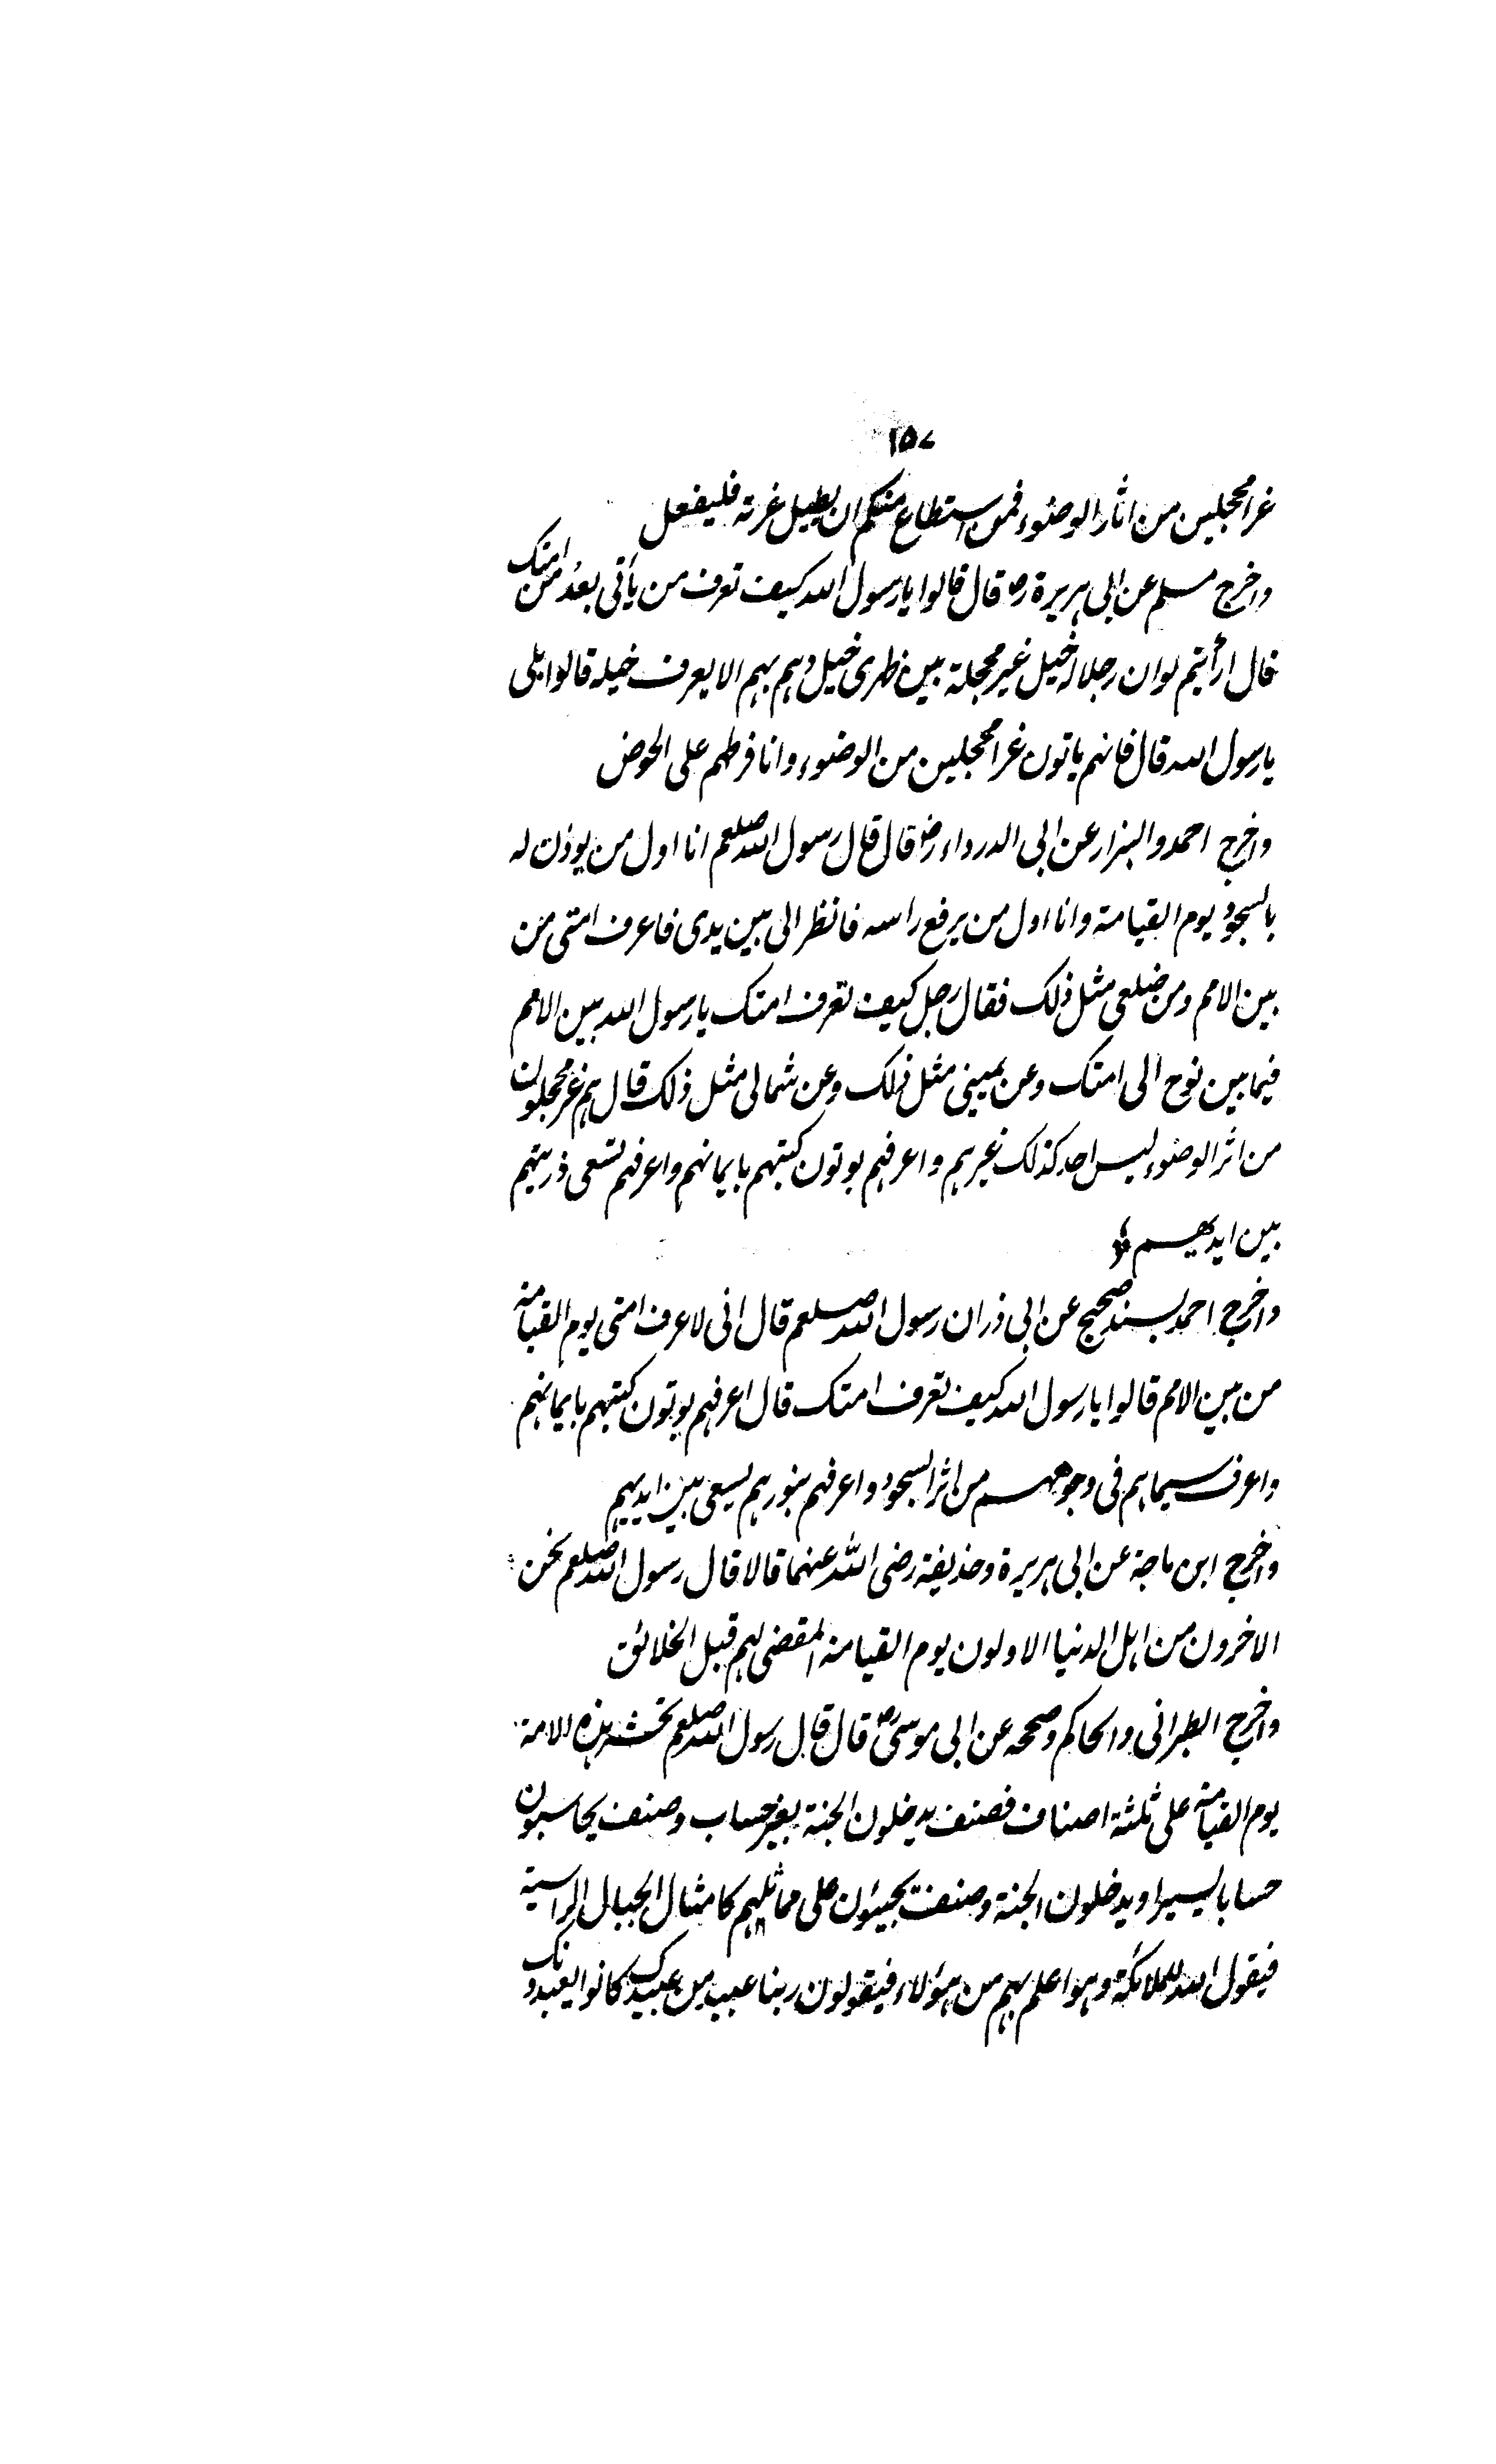 ۱۵۷
غرا محجلين من اثار الوضوء فمن استطاع منكم ان يطيل غرته فليفعل
واخرج مسلم عن ابى هريرة رض قال قالوا يا رسول الله كيف تعرف من يأتى بعد من امتك
قال ارأيتم لو ان رجلا له خيل غير محجلة بين ظهرى خيل دهم بهم الا يعرف خيله قالوا بلى
يا رسول الله قال فانهم ياتون غرا محجلين من الوضوء وانا فرطهم على الحوض
واخرج احمد والبزار عن ابى الدرداء رض قال قال رسول الله صلعم انا اول من يوذن له
بالسجود يوم القيامة وانا اول من يرفع راسه فانظر الى بين يدى فاعرف امتى من
بين الامم ومن خلفى مثل ذلك فقال رجل كيف تعرف امتك يا رسول الله بين الامم
فيما بين نوح الى امتك وعن يمينى مثل ذلك وعن شمالى مثل ذلك قال هم غر محجلون
من اثر الوضوء ليس احد كذلك غيرهم واعرفهم يوتون كتبهم بايمانهم واعرفهم تسعى ذريتهم
بين ايديهم
واخرج احمد بسند صحيح عن ابى ذر ان رسول الله صلعم قال انى لاعرف امتى يوم القيامة
من بين الامم قالوا يا رسول الله كيف تعرف امتك قال اعرفهم يوتون كتبهم بايمانهم
واعرف سيماهم فى وجوههم من اثر السجود واعرفهم بنورهم يسعى بين ايديهم
واخرج ابن ماجة عن ابى هريرة وحذيفة رضى الله عنهما قالا قال رسول الله صلعم نحن
الاخرون من اهل الدنيا الاولون يوم القيامة المقضى لهم قبل الخلائق
واخرج الطبرانى والحاكم وصححه عن ابى موسى رض قال قال رسول الله صلعم تحشر هذه الامة
يوم القيامة على ثلثة اصناف فصنف يدخلون الجنة بغير حساب وصنف يحاسبون
حسابا يسيرا ويدخلون الجنة وصنف يجيئون على مماثلهم كامثال الجبال الراسية
فيقول الله للملائكة وهو اعلم بهم من هؤلاء فيقولون ربنا عبيد من عبيدك كانوا يعبدونك